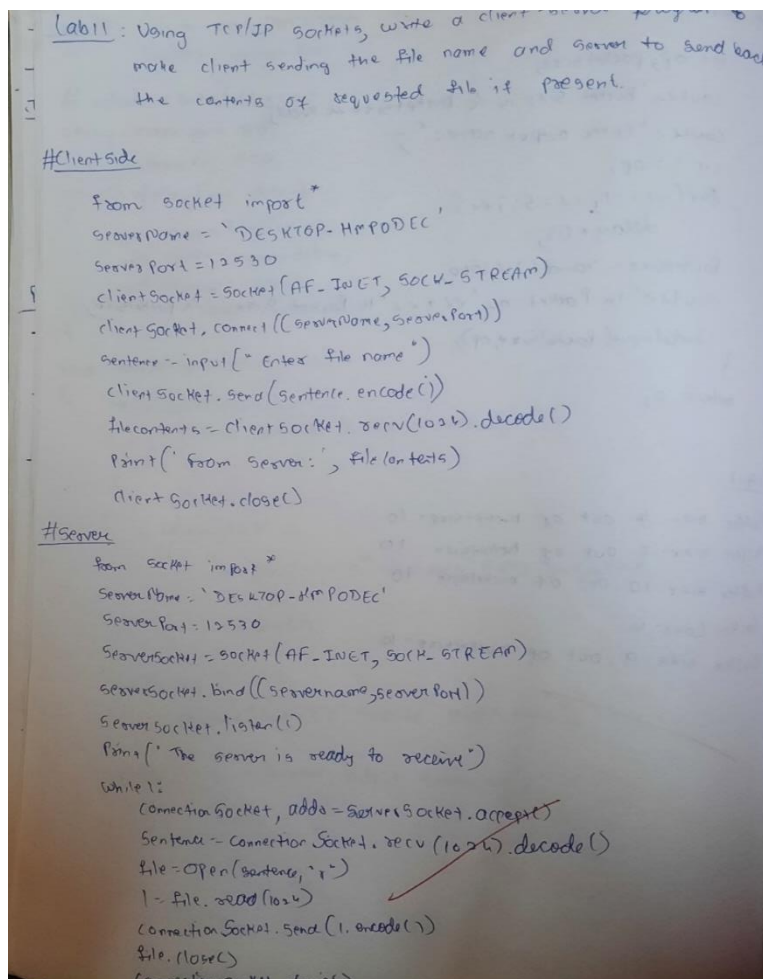 Lab11 : Using TCP/IP sockets, write a client
make client sending the file name and server to send back
the contents of requested file if present.
#Client Side
from socket import *
serverName = 'DESKTOP-HMPODEC'
serverPort = 12530
clientSocket = socket(AF_INET, SOCK_STREAM)
clientSocket.connect((serverName, serverPort))
sentence = input("Enter file name")
clientSocket.send(sentence.encode())
filecontents = clientSocket.recv(1024).decode()
Print('from server:', fileContents)
clientSocket.close()
#Server
from socket import *
ServerName = 'DESKTOP-HMPODEC'
ServerPort = 12530
ServerSocket = socket(AF_INET, SOCK_STREAM)
serverSocket.bind((servername, serverPort))
serverSocket.listen(1)
Print("The server is ready to receive")
While 1:
connectionSocket, addr = ServerSocket.accept()
Sentence = connectionSocket.recv(1024).decode()
file = open(sentence, "r")
l = file.read(1024)
connectionSocket.send(l.encode())
file.close()